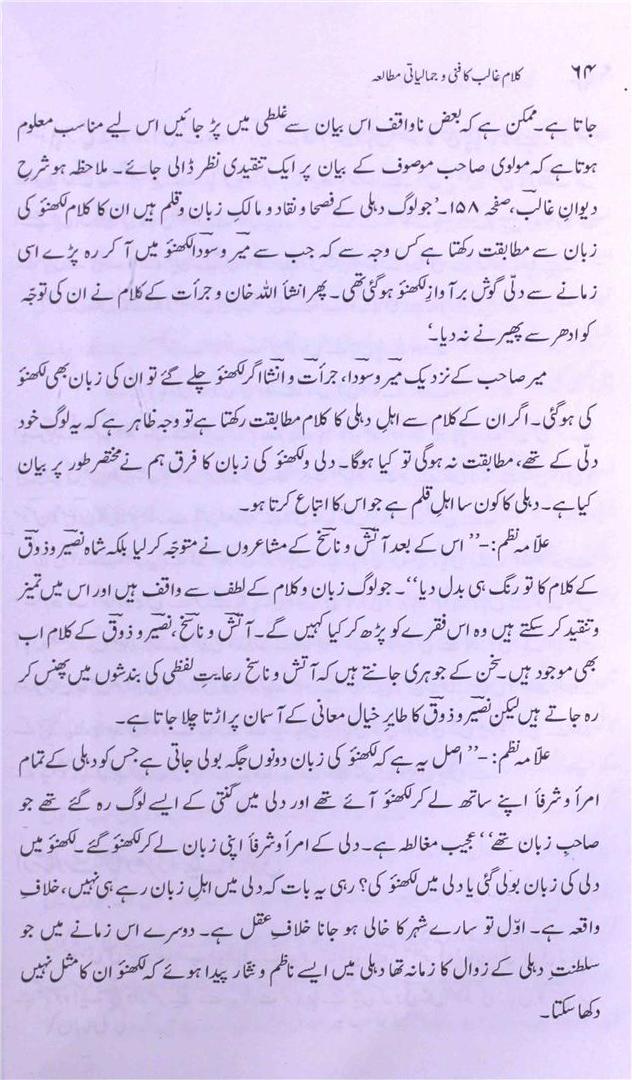 ۶۴ کلام غالب کا فنی و جمالیاتی مطالعہ
جاتا ہے۔ ممکن ہے کہ بعض ناواقف اس بیان سے غلطی میں پڑ جائیں اس لیے مناسب معلوم
ہوتا ہے کہ مولوی صاحب موصوف کے بیان پر ایک تنقیدی نظر ڈالی جائے۔ ملاحظہ ہو شرحِ
دیوانِ غالب، صفحہ ۱۵۸۔ ’جو لوگ دہلی کے فصحا و نقاد و مالکِ زبان و قلم ہیں ان کا کلام لکھنؤ کی
زبان سے مطابقت رکھتا ہے کس وجہ سے کہ جب سے میر و سودا لکھنؤ میں آ کر رہ پڑے اسی
زمانے سے دلّی گوش بر آوازِ لکھنؤ ہو گئی تھی۔ پھر انشأ اللہ خان و جرأت کے کلام نے ان کی توجّہ
کو ادھر سے پھیرنے نہ دیا۔‘
میر صاحب کے نزدیک میر و سودا، جرأت و انشا اگر لکھنؤ چلے گئے تو ان کی زبان بھی لکھنؤ
کی ہو گئی۔ اگر ان کے کلام سے اہلِ دہلی کا کلام مطابقت رکھتا ہے تو وجہ ظاہر ہے کہ یہ لوگ خود
دلّی کے تھے، مطابقت نہ ہوگی تو کیا ہوگا۔ دلی و لکھنؤ کی زبان کا فرق ہم نے مختصر طور پر بیان
کیا ہے۔ دہلی کا کون سا اہلِ قلم ہے جو اس کا اتباع کرتا ہو۔
علّامہ نظم:-’’ اس کے بعد آتش و ناسخ کے مشاعروں نے متوجّہ کر لیا بلکہ شاہ نصیر و ذوق
کے کلام کا تو رنگ ہی بدل دیا‘‘۔ جو لوگ زبان و کلام کے لطف سے واقف ہیں اور اس میں تمیز
و تنقید کر سکتے ہیں وہ اس فقرے کو پڑھ کر کیا کہیں گے۔ آتش و ناسخ، نصیر و ذوق کے کلام اب
بھی موجود ہیں۔ سخن کے جوہری جانتے ہیں کہ آتش و ناسخ رعایت لفظی کی بندشوں میں پھنس کر
رہ جاتے ہیں لیکن نصیر و ذوق کا طایرِ خیال معانی کے آسمان پر اڑتا چلا جاتا ہے۔
علّامہ نظم:-’’ اصل یہ ہے کہ لکھنؤ کی زبان دونوں جگہ بولی جاتی ہے جس کو دہلی کے تمام
امرأ و شرفأ اپنے ساتھ لے کر لکھنؤ آئے تھے اور دلی میں گنتی کے ایسے لوگ رہ گئے تھے جو
صاحبِ زبان تھے‘‘ عجیب مغالطہ ہے۔ دلی کے امرأ و شرفأ اپنی زبان لے کر لکھنؤ گئے۔ لکھنؤ میں
دلی کی زبان بولی گئی یا دلی میں لکھنؤ کی؟ رہی یہ بات کہ دلی میں اہلِ زبان رہے ہی نہیں، خلافِ
واقعہ ہے۔ اوّل تو سارے شہر کا خالی ہو جانا خلافِ عقل ہے۔ دوسرے اس زمانے میں جو
سلطنتِ دہلی کے زوال کا زمانہ تھا دہلی میں ایسے ناظم و نثار پیدا ہوئے کہ لکھنؤ ان کا مثل نہیں
دکھا سکتا۔